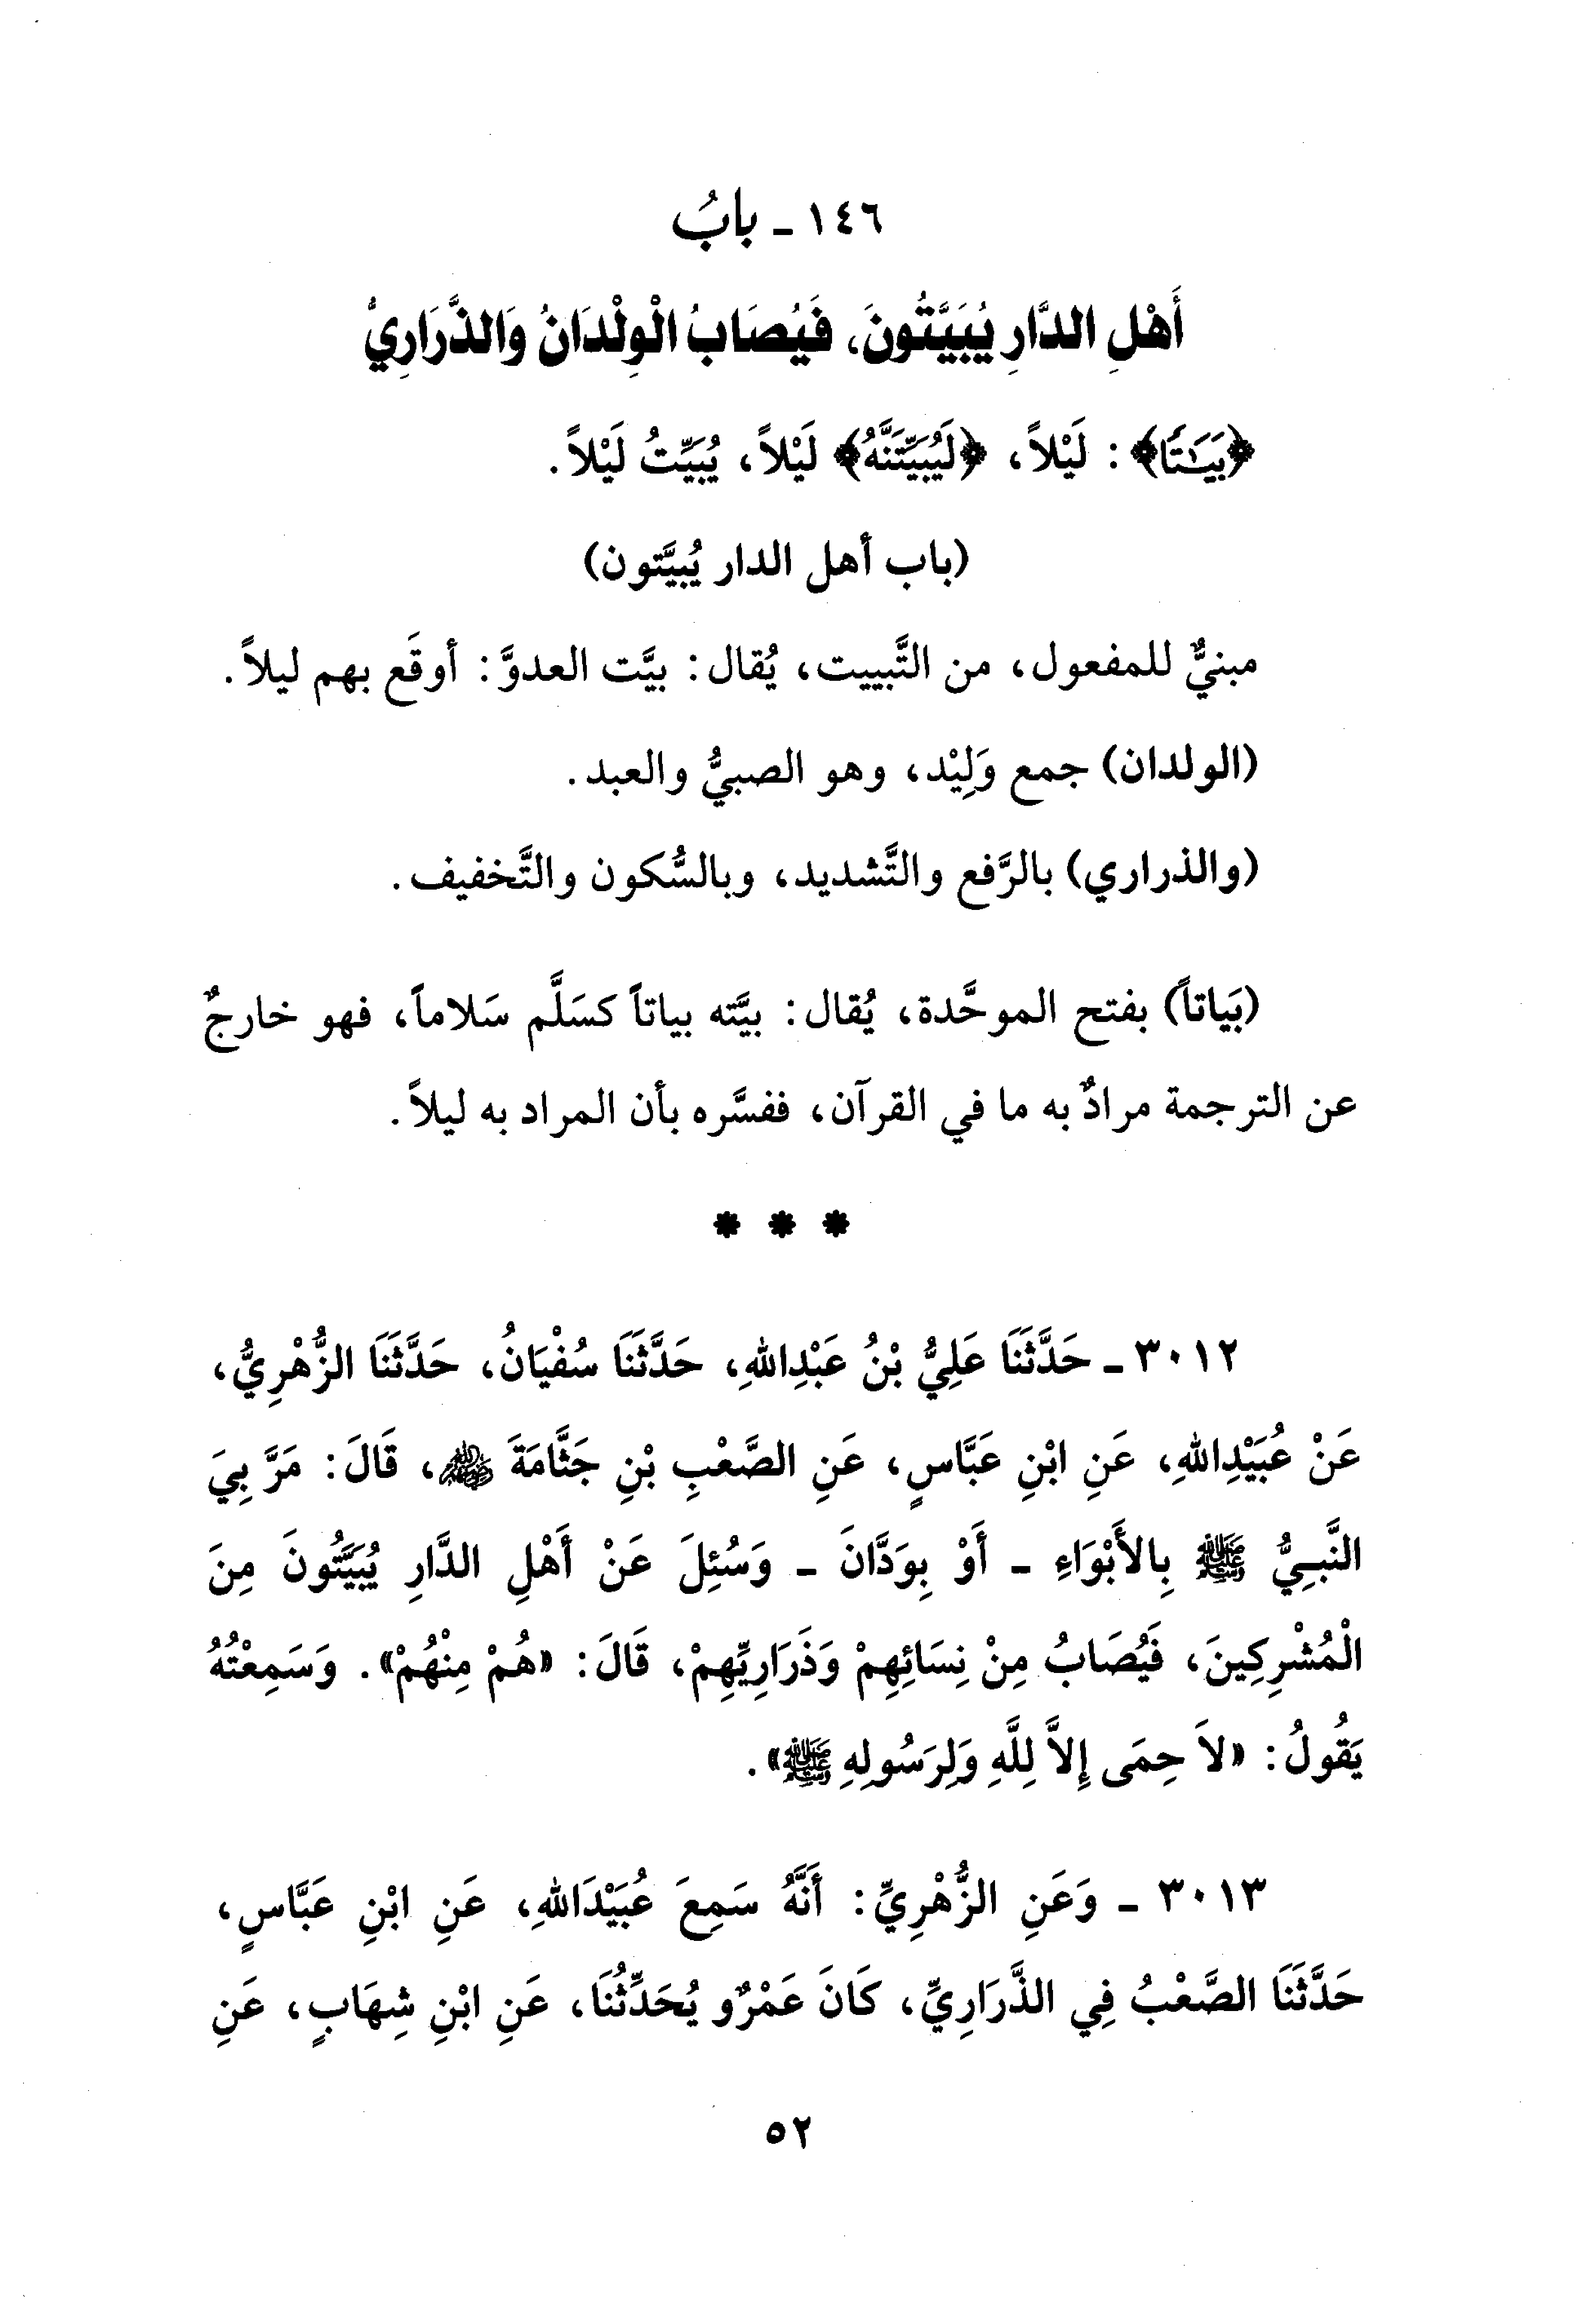 ١٤٦ ـ بابُ
أَهْلِ الدَّارِ يُبَيَّتُونَ، فَيُصَابُ الْوِلْدَانُ وَالذَّرَارِيُّ
﴿بَيَـٰتًا﴾: لَيْلاً، ﴿لَيُبَيِّتَنَّهُ﴾ لَيْلاً، يُبَيِّتُ لَيْلاً.
(باب أهل الدار يُبيَّتون)
مبنيٌّ للمفعول، من التَّبييت، يُقال: بيَّت العدوَّ: أوقَع بهم ليلاً.
(الولدان) جمع وَلِيْد، وهو الصبيُّ والعبد.
(والذراري) بالرَّفع والتَّشديد، وبالسُّكون والتَّخفيف.
(بَياتاً) بفتح الموحَّدة، يُقال: بيَّته بياتاً كسَلَّم سَلاماً، فهو خارجٌ
عن الترجمة مرادٌ به ما في القرآن، ففسَّره بأن المراد به ليلاً.
* * *
٣٠١٢ ـ حَدَّثَنَا عَلِيُّ بْنُ عَبْدِاللهِ، حَدَّثَنَا سُفْيَانُ، حَدَّثَنَا الزُّهْرِيُّ،
عَنْ عُبَيْدِاللهِ، عَنِ ابْنِ عَبَّاسٍ، عَنِ الصَّعْبِ بْنِ جَثَّامَةَ ﵁، قَالَ: مَرَّ بِيَ
النَّبِيُّ ﷺ بِالأَبْوَاءِ ـ أَوْ بِوَدَّانَ ـ وَسُئِلَ عَنْ أَهْلِ الدَّارِ يُبَيَّتُونَ مِنَ
الْمُشْرِكِينَ، فَيُصَابُ مِنْ نِسَائِهِمْ وَذَرَارِيِّهِمْ، قَالَ: «هُمْ مِنْهُمْ». وَسَمِعْتُهُ
يَقُولُ: «لاَ حِمَى إِلاَّ لِلَّهِ وَلِرَسُولِهِ ﷺ».
٣٠١٣ ـ وَعَنِ الزُّهْرِيِّ: أَنَّهُ سَمِعَ عُبَيْدَاللهِ، عَنِ ابْنِ عَبَّاسٍ،
حَدَّثَنَا الصَّعْبُ فِي الذَّرَارِيِّ، كَانَ عَمْرٌو يُحَدِّثُنَا، عَنِ ابْنِ شِهَابٍ، عَنِ
٥٢